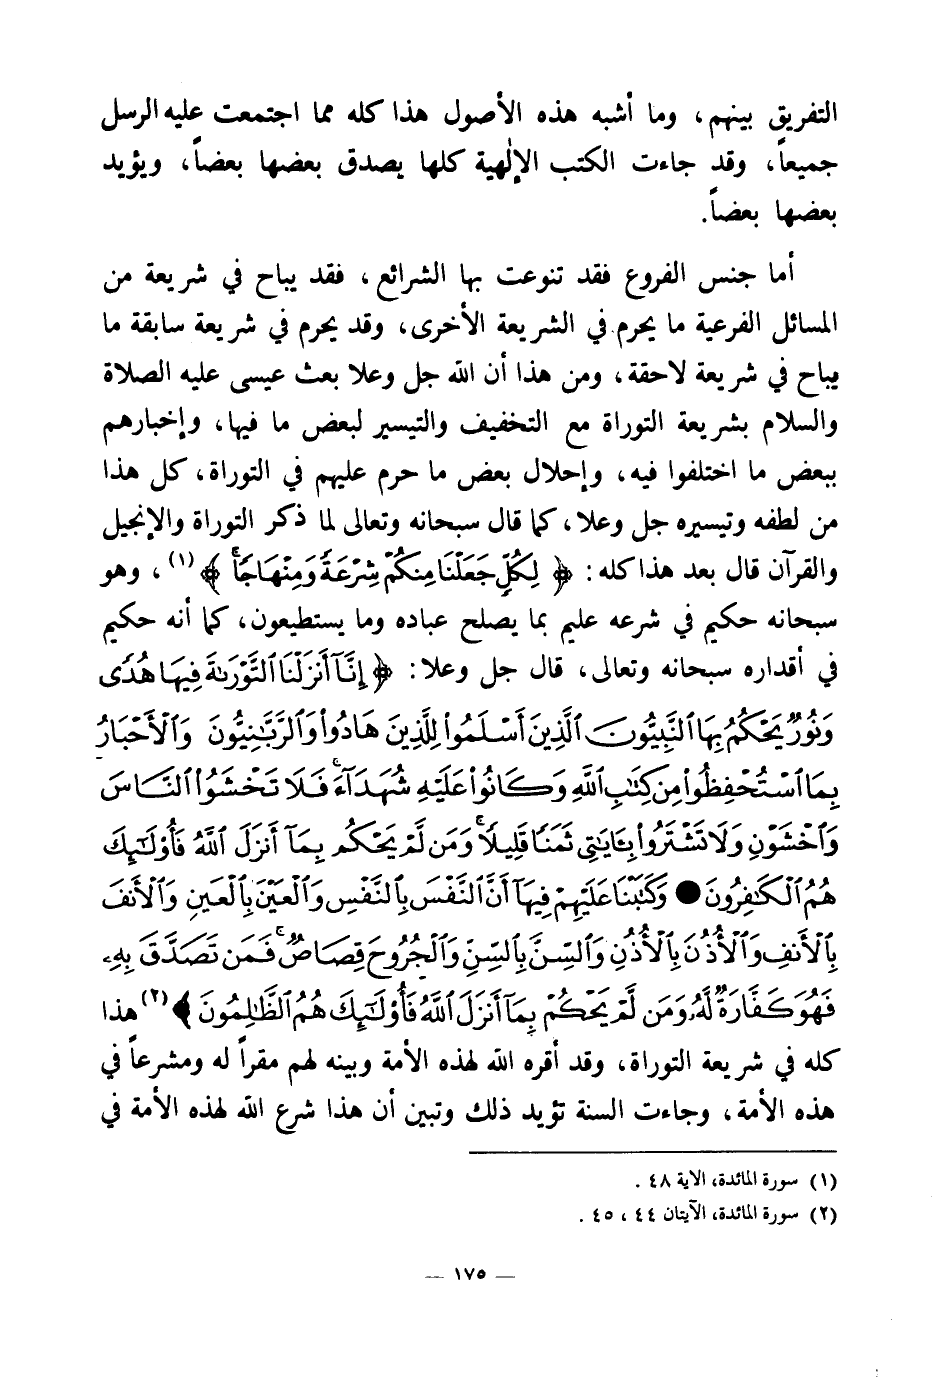 التفريق بينهم، وما أشبه هذه الأصول هذا كله مما اجتمعت عليه الرسل
جميعاً، وقد جاءت الكتب الإلٰهية كلها يصدق بعضها بعضاً، ويؤيد
بعضها بعضاً.
أما جنس الفروع فقد تنوعت بها الشرائع، فقد يباح في شريعة من
المسائل الفرعية ما يحرم في الشريعة الأخرى، وقد يحرم في شريعة سابقة ما
يباح في شريعة لاحقة، ومن هذا أن الله جل وعلا بعث عيسى عليه الصلاة
والسلام بشريعة التوراة مع التخفيف والتيسير لبعض ما فيها، وإخبارهم
ببعض ما اختلفوا فيه، وإحلال بعض ما حرم عليهم في التوراة، كل هذا
من لطفه وتيسيره جل وعلا، كما قال سبحانه وتعالى لما ذكر التوراة والإنجيل
والقرآن قال بعد هذا كله: ﴿ لِكُلٍّ جَعَلْنَا مِنكُمْ شِرْعَةً وَمِنْهَاجًا ﴾(١)، وهو
سبحانه حكيم في شرعه عليم بما يصلح عباده وما يستطيعون، كما أنه حكيم
في أقداره سبحانه وتعالى، قال جل وعلا: ﴿ إِنَّآ أَنزَلْنَا ٱلتَّوْرَىٰةَ فِيهَا هُدًى
وَنُورٌ يَحْكُمُ بِهَا ٱلنَّبِيُّونَ ٱلَّذِينَ أَسْلَمُوا۟ لِلَّذِينَ هَادُوا۟ وَٱلرَّبَّٰنِيُّونَ وَٱلْأَحْبَارُ
بِمَا ٱسْتُحْفِظُوا۟ مِن كِتَٰبِ ٱللَّهِ وَكَانُوا۟ عَلَيْهِ شُهَدَآءَ ۚ فَلَا تَخْشَوُا۟ ٱلنَّاسَ
وَٱخْشَوْنِ وَلَا تَشْتَرُوا۟ بِـَٔايَٰتِى ثَمَنًا قَلِيلًا ۚ وَمَن لَّمْ يَحْكُم بِمَآ أَنزَلَ ٱللَّهُ فَأُو۟لَٰٓئِكَ
هُمُ ٱلْكَٰفِرُونَ ● وَكَتَبْنَا عَلَيْهِمْ فِيهَآ أَنَّ ٱلنَّفْسَ بِٱلنَّفْسِ وَٱلْعَيْنَ بِٱلْعَيْنِ وَٱلْأَنفَ
بِٱلْأَنفِ وَٱلْأُذُنَ بِٱلْأُذُنِ وَٱلسِّنَّ بِٱلسِّنِّ وَٱلْجُرُوحَ قِصَاصٌ ۚ فَمَن تَصَدَّقَ بِهِۦ
فَهُوَ كَفَّارَةٌ لَّهُۥ وَمَن لَّمْ يَحْكُم بِمَآ أَنزَلَ ٱللَّهُ فَأُو۟لَٰٓئِكَ هُمُ ٱلظَّٰلِمُونَ ﴾(٢) هذا
كله في شريعة التوراة، وقد أقره الله لهذه الأمة وبينه لهم مقراً له ومشرعاً في
هذه الأمة، وجاءت السنة تؤيد ذلك وتبين أن هذا شرع الله لهذه الأمة في
(١) سورة المائدة، الاية ٤٨ .
(٢) سورة المائدة، الآيتان ٤٤ ، ٤٥ .
— ١٧٥ —